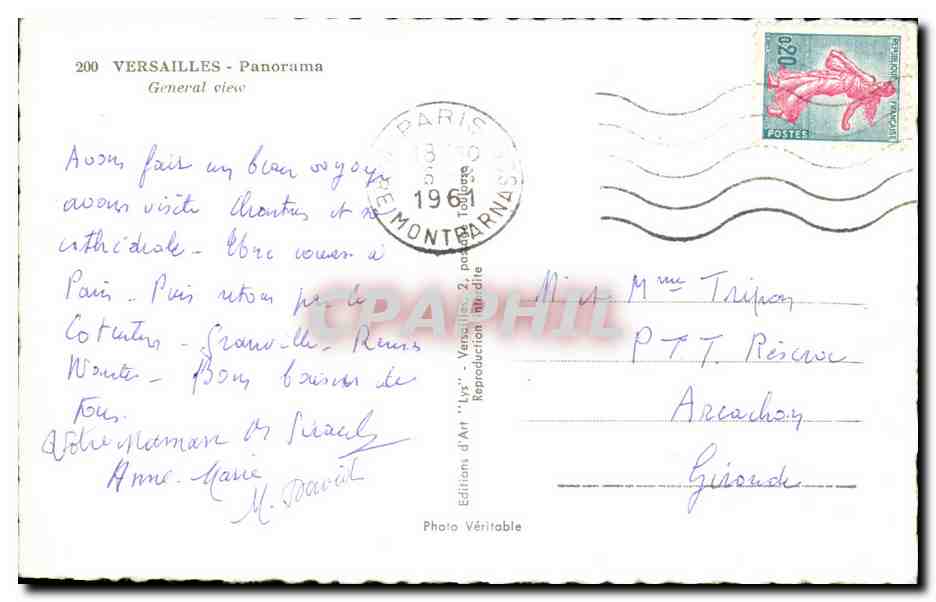 200 VERSAILLES - Panorama
General view
Avons fait un beau voyage
avons visité Chartres et sa
cathédrale -
Paris. Puis retour par le
Cotentin - Granville - Rennes
Nantes - Bons baisers de
tous.
Votre Maman
Anne-Marie
M. David
PARIS
GARE MONTPARNASSE
1961
0,20
REPUBLIQUE FRANÇAISE
POSTES
Editions d'Art "Lys" - Versailles, 2, passage Toulouse
Reproduction interdite
M et Mme Tripon
PTT
Arcachon
Gironde
Photo Véritable
CPAPHIL